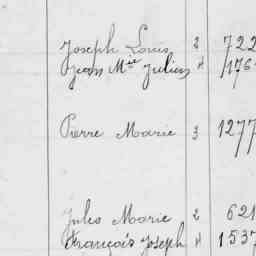 Joseph Louis 2 722
Jean Mie Julien 4 176
Pierre Marie 3 1277
Jules Marie 2 621
François Joseph 4 1537